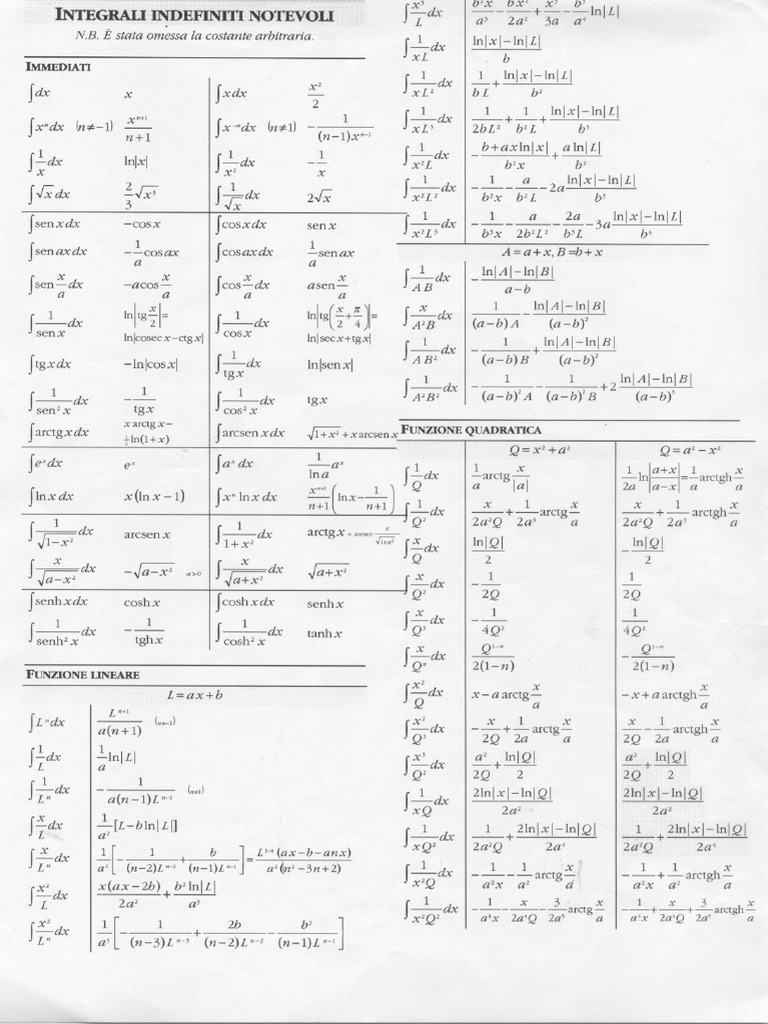 INTEGRALI INDEFINITI NOTEVOLI
N.B. È stata omessa la costante arbitraria.
IMMEDIATI
∫dx x ∫xdx x²/2
∫xⁿdx (n≠-1) xⁿ⁺¹/(n+1) ∫x⁻ⁿdx (n≠1) -1/((n-1)xⁿ⁻¹)
∫1/x dx ln|x| ∫1/x² dx -1/x
∫√x dx 2/3 √x³ ∫1/√x dx 2√x
∫sen x dx -cos x ∫cos x dx sen x
∫sen ax dx -1/a cos ax ∫cos ax dx 1/a sen ax
∫sen x/a dx -a cos x/a ∫cos x/a dx a sen x/a
∫1/sen x dx ln|tg x/2|= ln|cosec x-ctg x| ∫1/cos x dx ln|tg(x/2+π/4)|= ln|sec x+tg x|
∫tg x dx -ln|cos x| ∫1/tg x dx ln|sen x|
∫1/sen² x dx -1/tg x ∫1/cos² x dx tg x
∫arctg x dx x arctg x- ½ln(1+x) ∫arcsen x dx √1+x² + x arcsen x
∫eˣ dx eˣ ∫aˣ dx 1/ln a aˣ
∫ln x dx x(ln x-1) ∫xⁿ ln x dx xⁿ⁺¹/(n+1) (ln x-1/(n+1))
∫1/√(1-x²) dx arcsen x ∫1/(1+x²) dx arctg x = arcsen x/√(1+x²)
∫x/√(a-x²) dx -√(a-x²) a>0 ∫x/√(a+x²) dx √(a+x²)
∫senh x dx cosh x ∫cosh x dx senh x
∫1/senh² x dx -1/tgh x ∫1/cosh² x dx tanh x
FUNZIONE LINEARE
L=ax+b
∫Lⁿdx Lⁿ⁺¹/(a(n+1))
∫1/L dx 1/a ln|L|
∫1/Lⁿ dx -1/(a(n-1)Lⁿ⁻¹) (n≠1)
∫x/L dx 1/a² [L-b ln|L|]
∫x/Lⁿ dx 1/a² [-1/((n-2)Lⁿ⁻²) + b/((n-1)Lⁿ⁻¹)] = L¹⁻ⁿ(ax-b-anx)/(a²(n²-3n+2)
∫x²/L dx x(ax-2b)/2a² + b² ln|L|/a³
∫x²/Lⁿ dx 1/a³ [-1/((n-3)Lⁿ⁻³) + 2b/((n-2)Lⁿ⁻²) - b²/((n-1)Lⁿ⁻¹)]
∫x³/L dx b²x/a³ - bx²/2a² + x³/3a - b³/a⁴ ln|L|
∫1/xL dx (ln|x|-ln|L|)/b
∫1/xL² dx 1/bL + (ln|x|-ln|L|)/b²
∫1/xL³ dx 1/2bL² + 1/b²L + (ln|x|-ln|L|)/b³
∫1/x²L dx -(b+ax ln|x|)/b²x + a ln|L|/b²
∫1/x²L² dx -1/b²x - a/b²L - 2a (ln|x|-ln|L|)/b³
∫1/x²L³ dx -1/b³x - a/2b²L² - 2a/b³L - 3a (ln|x|-ln|L|)/b⁴
A=a+x, B=b+x
∫1/AB dx -(ln|A|-ln|B|)/(a-b)
∫x/A²B dx 1/((a-b)A) - (ln|A|-ln|B|)/(a-b)²
∫1/AB² dx -1/((a-b)B) + (ln|A|-ln|B|)/(a-b)²
∫1/A²B² dx -1/((a-b)²A) - 1/((a-b)²B) + 2 (ln|A|-ln|B|)/(a-b)³
FUNZIONE QUADRATICA
Q=x²+a² Q=a²-x²
∫1/Q dx 1/a arctg x/|a| 1/2a ln|(a+x)/(a-x)| = 1/a arctgh x/a
∫1/Q² dx x/2a²Q + 1/2a³ arctg x/a x/2a²Q + 1/2a³ arctgh x/a
∫x/Q dx ln|Q|/2 -ln|Q|/2
∫x/Q² dx -1/2Q 1/2Q
∫x/Q³ dx -1/4Q² 1/4Q²
∫x/Qⁿ dx Q¹⁻ⁿ/2(1-n) -Q¹⁻ⁿ/2(1-n)
∫x²/Q dx x-a arctg x/a -x+a arctgh x/a
∫x²/Q² dx -x/2Q + 1/2a arctg x/a x/2Q - 1/2a arctgh x/a
∫x³/Q² dx a²/2Q + ln|Q|/2 a²/2Q + ln|Q|/2
∫1/xQ dx (2ln|x|-ln|Q|)/2a² (2ln|x|-ln|Q|)/2a²
∫1/xQ² dx 1/2a²Q + (2ln|x|-ln|Q|)/2a⁴ 1/2a²Q + (2ln|x|-ln|Q|)/2a⁴
∫1/x²Q dx -1/a²x - 1/a³ arctg x/a -1/a²x + 1/a³ arctgh x/a
∫1/x²Q² dx -1/a⁴x - x/2a⁴Q - 3/2a⁵ arctg x/a -1/a⁴x + x/2a⁴Q + 3/2a⁵ arctgh x/a